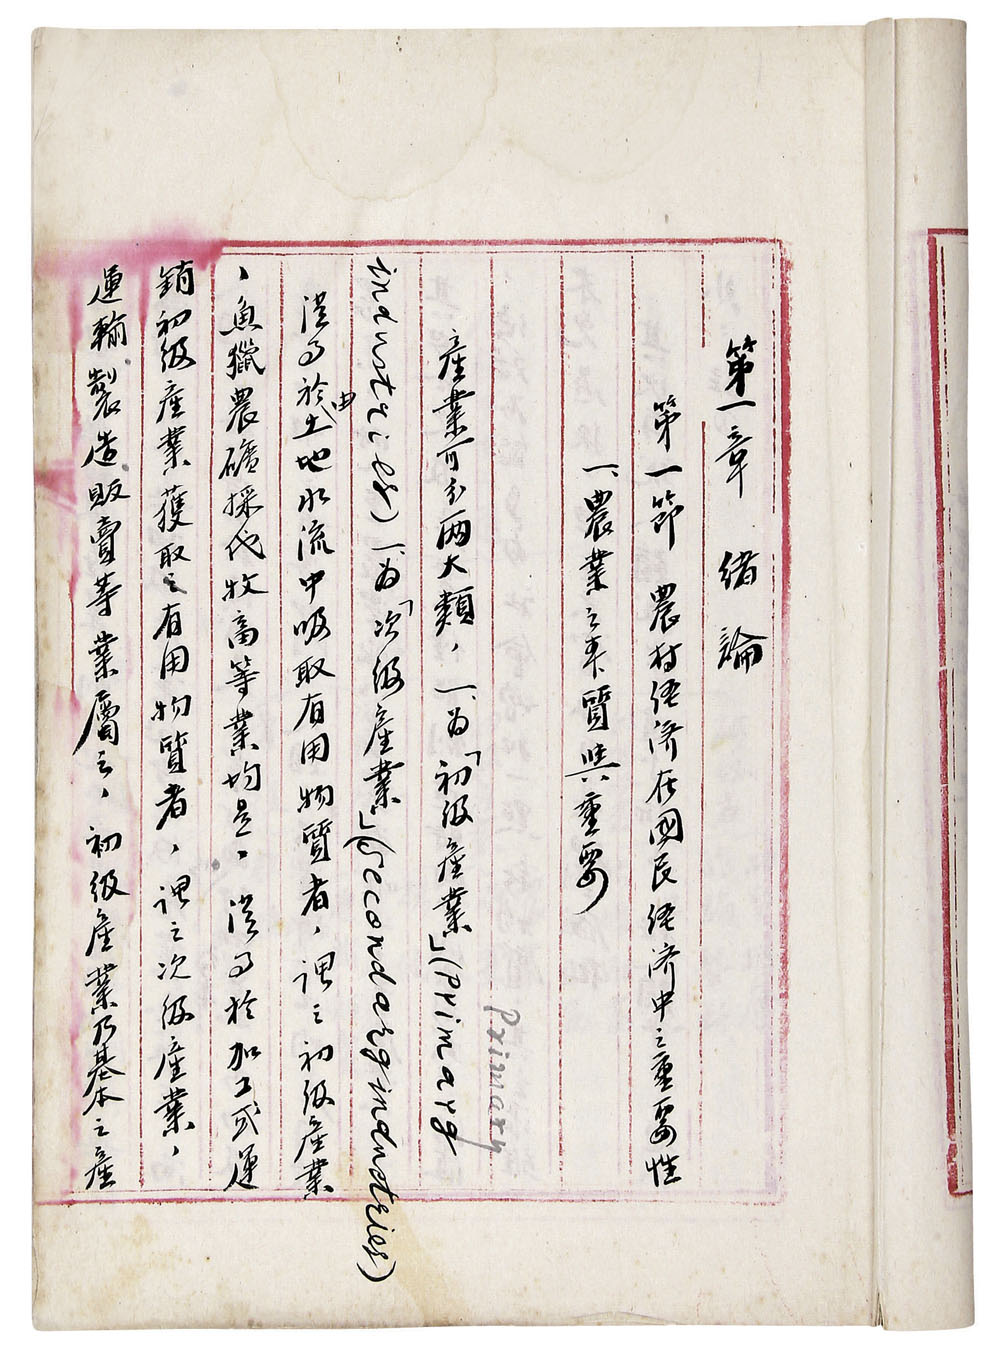 第一章 緒論
第一節 農村經濟在國民經濟中之重要性
一、農業之本質與重要
產業可分兩大類，一、為「初級產業」(Primarg
Primary
industries) 一、為「次級產業」(Secondarg industries)
從事於由土地水流中吸取有用物質者，謂之初級產業
，魚獵農礦採伐牧畜等業均是，從事於加工或運
銷初級產業獲取之有用物質者，謂之次級產業，
運輸製造販賣等業屬之，初級產業乃基本之產